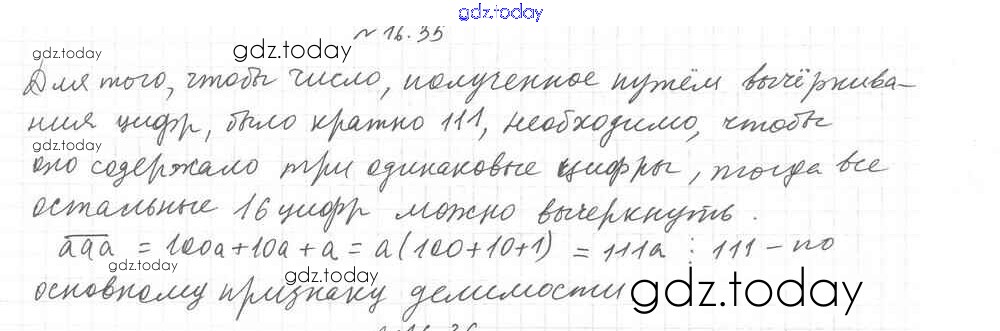 gdz.today
№ 16.35
gdz.today
gdz.today
Для того, чтобы число, полученное путём вычёркива-
ния цифр, было кратно 111, необходимо, чтобы
gdz.today
оно содержало три одинаковые цифры, тогда все
остальные 16 цифр можно вычеркнуть.
aaa = 100a+10a+a = a(100+10+1) = 111a ⋮ 111 – по
gdz.today
gdz.today
основному признаку делимости
gdz.today